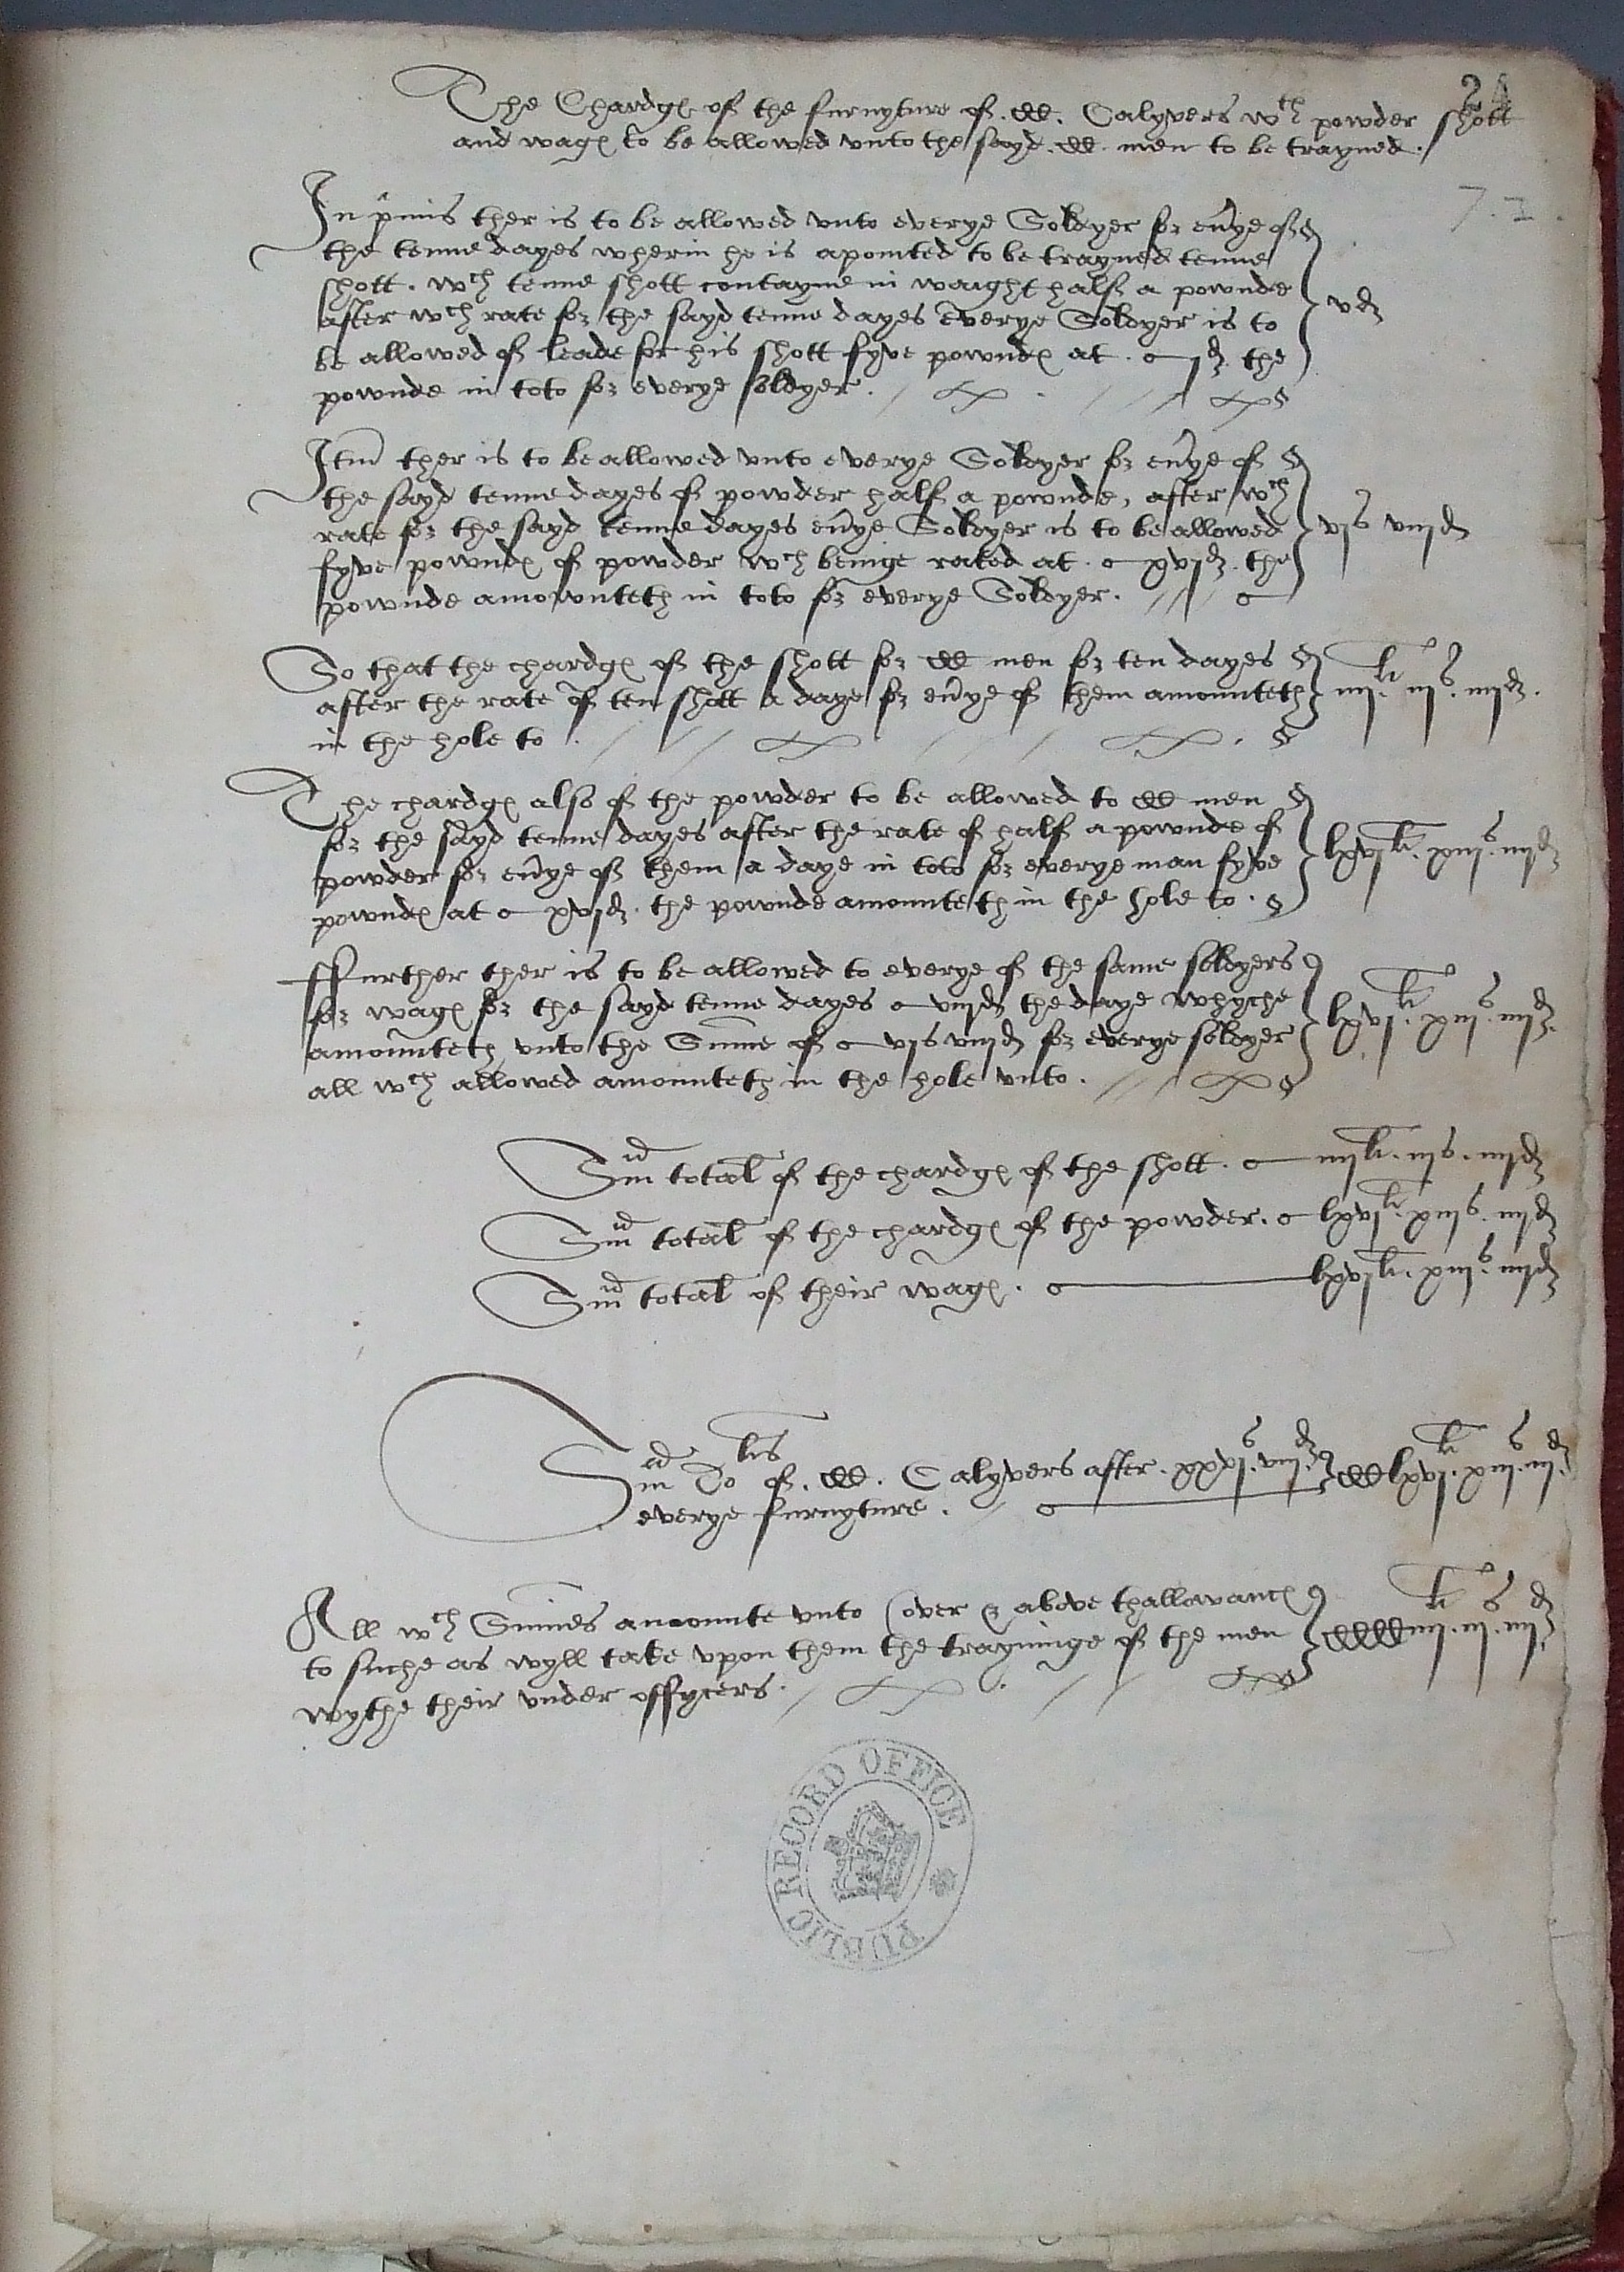 24
The Chardgs of the furnyture of .CC. Calyvers wth powder shott
and wags to be allowed vnto the sayd .CC. men to be trayned.
7. 1.
In p̃mis ther is to be allowed vnto everye Soldyer for eũye of
the tenne dayes wherin he is apointed to be trayned tenne
shott . wch tenne shott contayne in waight half a pownde
after wch rate for the sayd tenne dayes everye Soldyer is to
be allowed of leade for his shott fyve pownds at . jd. the
pownde in toto for everye soldyer.
vd
Itm̃ ther is to be allowed vnto everye Soldyer for eũye of
the sayd tenne dayes of powder half a pownde, after wch
rate for the sayd tenne dayes eũye Soldyer is to be allowed
fyve pownds of powder wch beinge rated at . xvjd. the
pownde amownteth in toto for everye Soldyer.
vjs viijd
So that the chardgs of the shott for CC men for ten dayes
after the rate of ten shott a daye for eũye of them amounteth
in the hole to .
iiijli. iijs. iiijd.
The chardgs also of the powder to be allowed to CC men
for the sayd tenne dayes after the rate of half a pownde of
powder for eũye of them a daye in toto for everye man fyve
pownds at xvjd. the pownde amounteth in the hole to .
lxvjli. xiijs. iiijd
ffurther ther is to be allowed to everye of the same soldyers
for wags for the sayd tenne dayes viijd the daye whyche
amounteth vnto the Sum̃e of vjs viijd for everye soldyer
all wch allowed amounteth in the hole vnto .
lxvjli. xiijs. iiijd.
Sm̃ total of the chardgs of the shott. iiijli. iijs. iiijd
Sm̃ total of the chardgs of the powder. lxvjli. xiijs. iiijd
Sm̃ total of their wags . lxvjli. xiijs. iiijd
Sm̃ of .CC. Calyvers after . xxvjs. viijd. CClxvjli. xiijs. iiijd.
everye furnyture .
All wch Sum̃es amounte vnto (over & above thallowancs
to suche as wyll take vpon them the trayninge of the men
wythe their vnder offycers.
CCCCiiijli. iijs. iiijd.
PUBLIC RECORD OFFICE